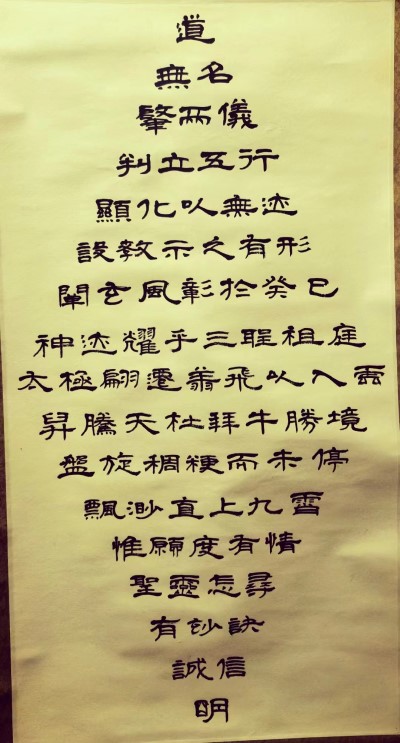 道
無名
肇兩儀
判立五行
顯化以無迹
設教示之有形
闡玄風彰於癸巳
神迹耀乎三聖祖庭
太極翩遷翥飛以入雲
昇騰天杜拜牛勝境
盤旋稠粳而未停
飄渺直上九霄
惟願度有情
聖靈怎尋
有玅訣
誠信
明